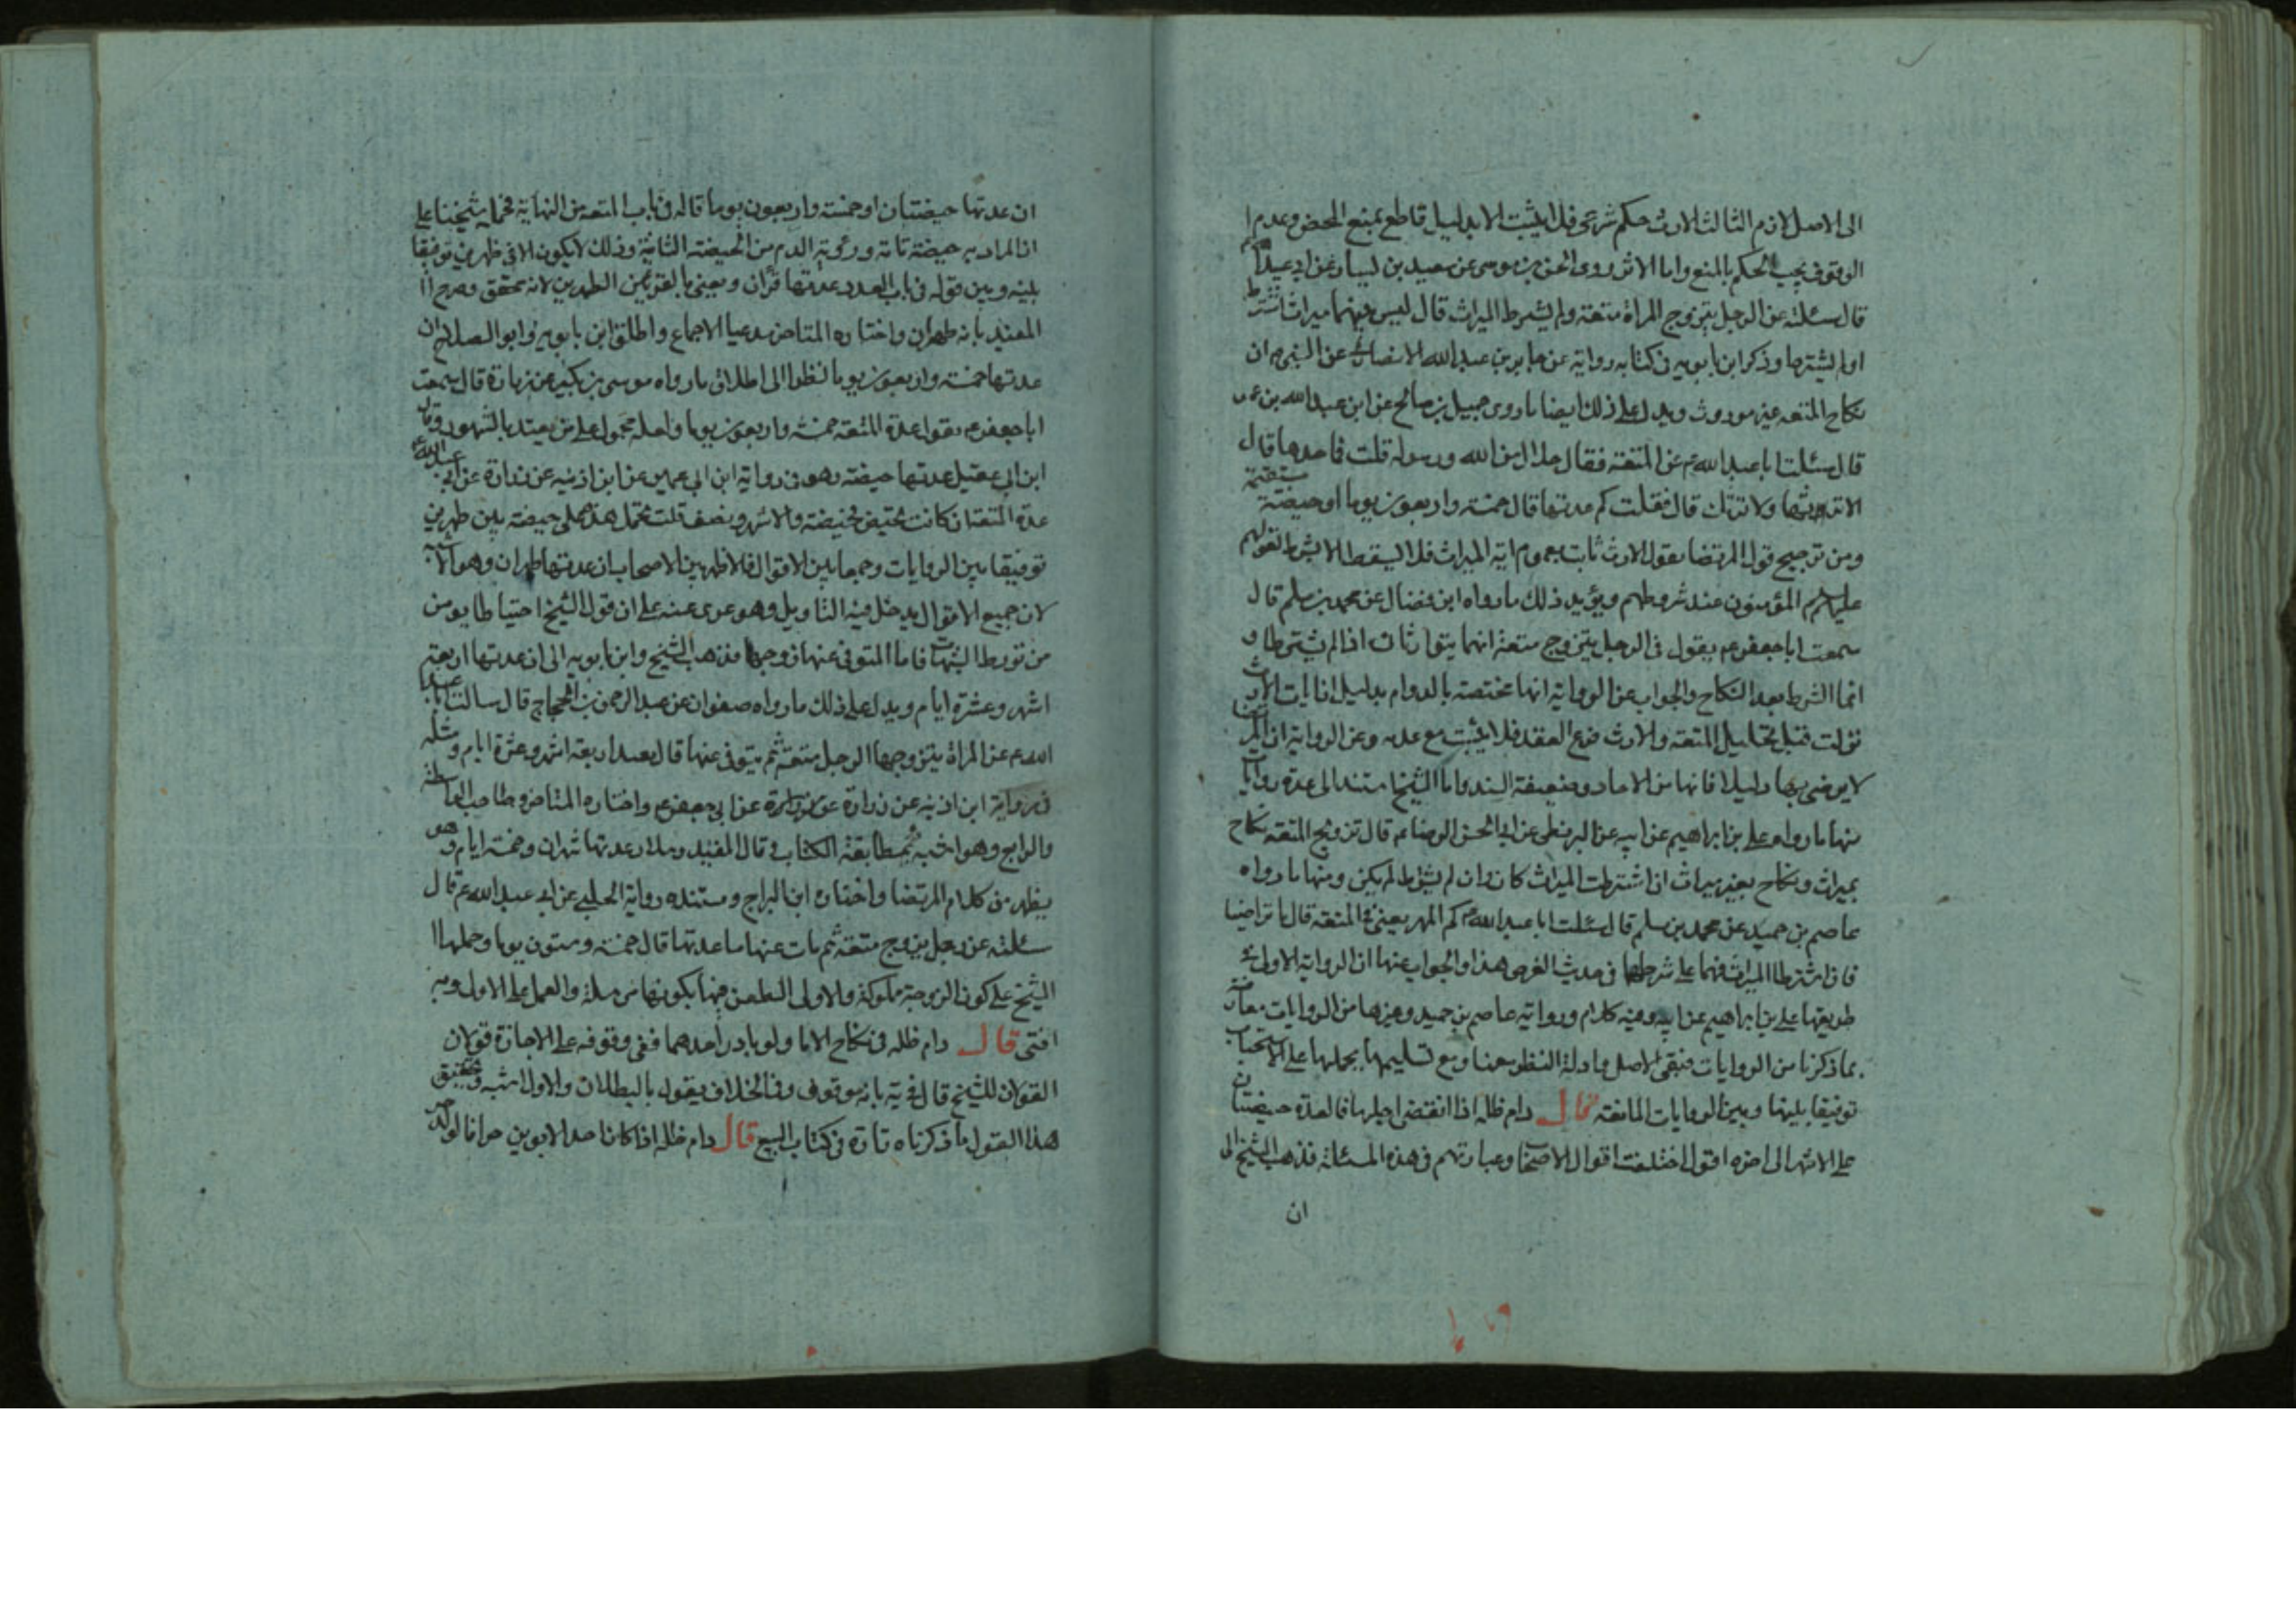 الى الاصل لازم الثالث الارث حكم شرعى فلا يثبت الا بدليل قاطع يمنع المحض وعدم ا
الوقوف يجب الحكم بالمنع واما الاثر روى الحسن بن موسى عن سعيد بن يسار عن ابى عبدالله ع
قال سئلته عن الرجل يتزوج المراة متعة ولم يشترط الميراث قال ليس بينهما ميراث اشترط
اولم يشترط وذكر ابن بابويه فى كتابه رواية عن جابر بن عبدالله الانصارى عن النبى ص ان
نكاح المتعه غير موروث ويدل على ذلك ايضا ما روى جميل بن صالح عن ابن عبدالله بن عمر
قال سئلت ابا عبدالله ع عن المتعة فقال حلال من الله ورسوله قلت فما حدها قال
الا ترثها ولا ترثك قال فقلت كم عدتها قال خمسة واربعون يوما او حيضة مستقيمة
ومن ترجيح قول المرتضا يقول الارث ثابت بعموم اية الميراث فلا يسقط الا بشرط لقولهم
عليهم السلام المؤمنون عند شروطهم ويؤيد ذلك ما رواه ابن فضال عن محمد بن مسلم قال
سمعت ابا جعفر ع يقول فى الرجل يتزوج متعة انهما يتوارثان اذا لم يشترطا و
انما الشرط بعد النكاح والجواب عن الرواية انها مختصة بالدوام بدليل ان ايات الارث
نزلت قبل تحليل المتعه والارث فرع العقد فلا يثبت مع عدمه وعن الرواية ان
لا يرضى بها دليلا فانها من الاحاد وضعيفة السند واما الشيخ استند الى عدة روايات
منها ما رواه على بن ابراهيم عن ابيه عن البزنطى عن ابى الحسن الرضا ع قال تزويج المتعه نكاح
بميراث ونكاح بغير ميراث ان اشترطت الميراث كان وان لم يشترط لم يكن ومنها ما رواه
عاصم بن حميد عن محمد بن مسلم قال سئلت ابا عبدالله ع كم المهر يعنى فى المتعه قال ما تراضيا
فان اشترطا الميراث فهما على شرطهما فى حديث الغرض هذا والجواب عنها ان الرواية الاولى
طريقها على بن ابراهيم عن ابيه وفيه كلام ورواية عاصم بن حميد وغيرها من الروايات معارضة
بما ذكرنا من الروايات فبقى الاصل وادلة النظر معنا ومع تسليمها يحملها على الاستحباب
توفيقا بينها وبين الروايات المانعة قال دام ظله اذا انقضى اجلها فالعدة حيضتان
على الاشهر الى اخره اقول اختلفت اقوال الاصحاب وعبارتهم فى هذه المسئلة فذهب الشيخ الى
ان
ان عدتها حيضتان او خمسة واربعون يوما قاله فى باب المتعه من النهاية فحمله شيخنا على
ان المراد به حيضة تامة ورؤية الدم من الحيضة الثانية وذلك لا يكون الا فى طهرين توفيقا
بينه وبين قوله فى باب العدد عدتها قرآن ويعنى بالقرئين الطهرين لانه محقق وصرح
المفيد بانه طهران واختاره المتاخر مدعيا الاجماع واطلق ابن بابويه وابو الصلاح ان
عدتها خمسة واربعون يوما نظرا الى اطلاق ما رواه موسى بن بكير عن زرارة قال سمعت
ابا جعفر ع يقول عدة المتعة خمسة واربعون يوما ولعله محمول على من يعتد بالشهور وقال
ابن ابى عقيل عدتها حيضة وهو فى رواية ابن ابى عمير عن ابن اذينه عن زرارة عن ابى عبدالله ع
عدة المتعة ان كانت تحيض فحيضة والا شهر ونصف قلت تحمل هذه على حيضة بين طهرين
توفيقا بين الروايات وجمعا بين الاقوال فالاظهر بين الاصحاب ان عدتها طهران وهو
لان جميع الاقوال يدخل فيه التاويل وهو عرى عنه على ان قول الشيخ احتياطا يومن
من تورط الشبهات فاما المتوفى عنها زوجها فذهب الشيخ وابن بابويه الى ان عدتها اربعة
اشهر وعشرة ايام ويدل على ذلك ما رواه صفوان عن عبدالرحمن بن الحجاج قال سالت ابا عبد
الله ع عن المراة يتزوجها الرجل متعة ثم يتوفى عنها قال تعتد اربعة اشهر وعشرة ايام ومثله
فى رواية ابن اذينه عن زرارة عن ابى جعفر ع واختاره المتاخر وصاحب الواسطة
والرابع وهو اشبه لمطابقة الكتاب وقال المفيد وسلار عدتها شهران وخمسة ايام وهو
يظهر من كلام المرتضا واختاره ابن البراج ومستنده رواية الحلبى عن ابى عبدالله ع قال
سئلته عن رجل تزوج متعة ثم مات عنها ما عدتها قال خمسة وستون يوما وحملها
الشيخ على كون الزوجة مملوكة والاولى الطعن فيها بكونها مرسلة والعمل على الاول وبه
افتى قال دام ظله فى نكاح الاما ولو بادر احدهما ففى وقوفه على الاجازة قولان
القولان للشيخ قال فى ية بانه موقوف وفى الخلاف يقول بالبطلان والاول اشبه وتحقيق
هذا القول ما ذكرناه تارة فى كتاب البيع قال دام ظله اذا كان احد الابوين حرا فالولد حر